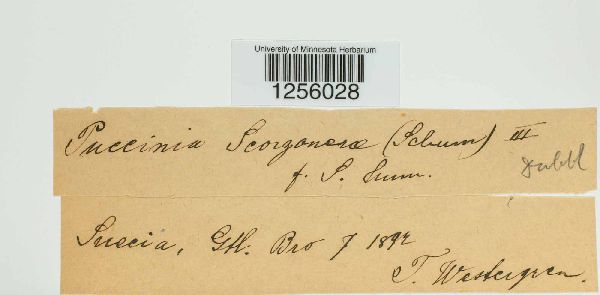 University of Minnesota Herbarium
1256028
Puccinia Scorzoneræ (Schum) III
f. S. hum.
Suecia, Gtl. Bro 7 1892
T. Westergren.